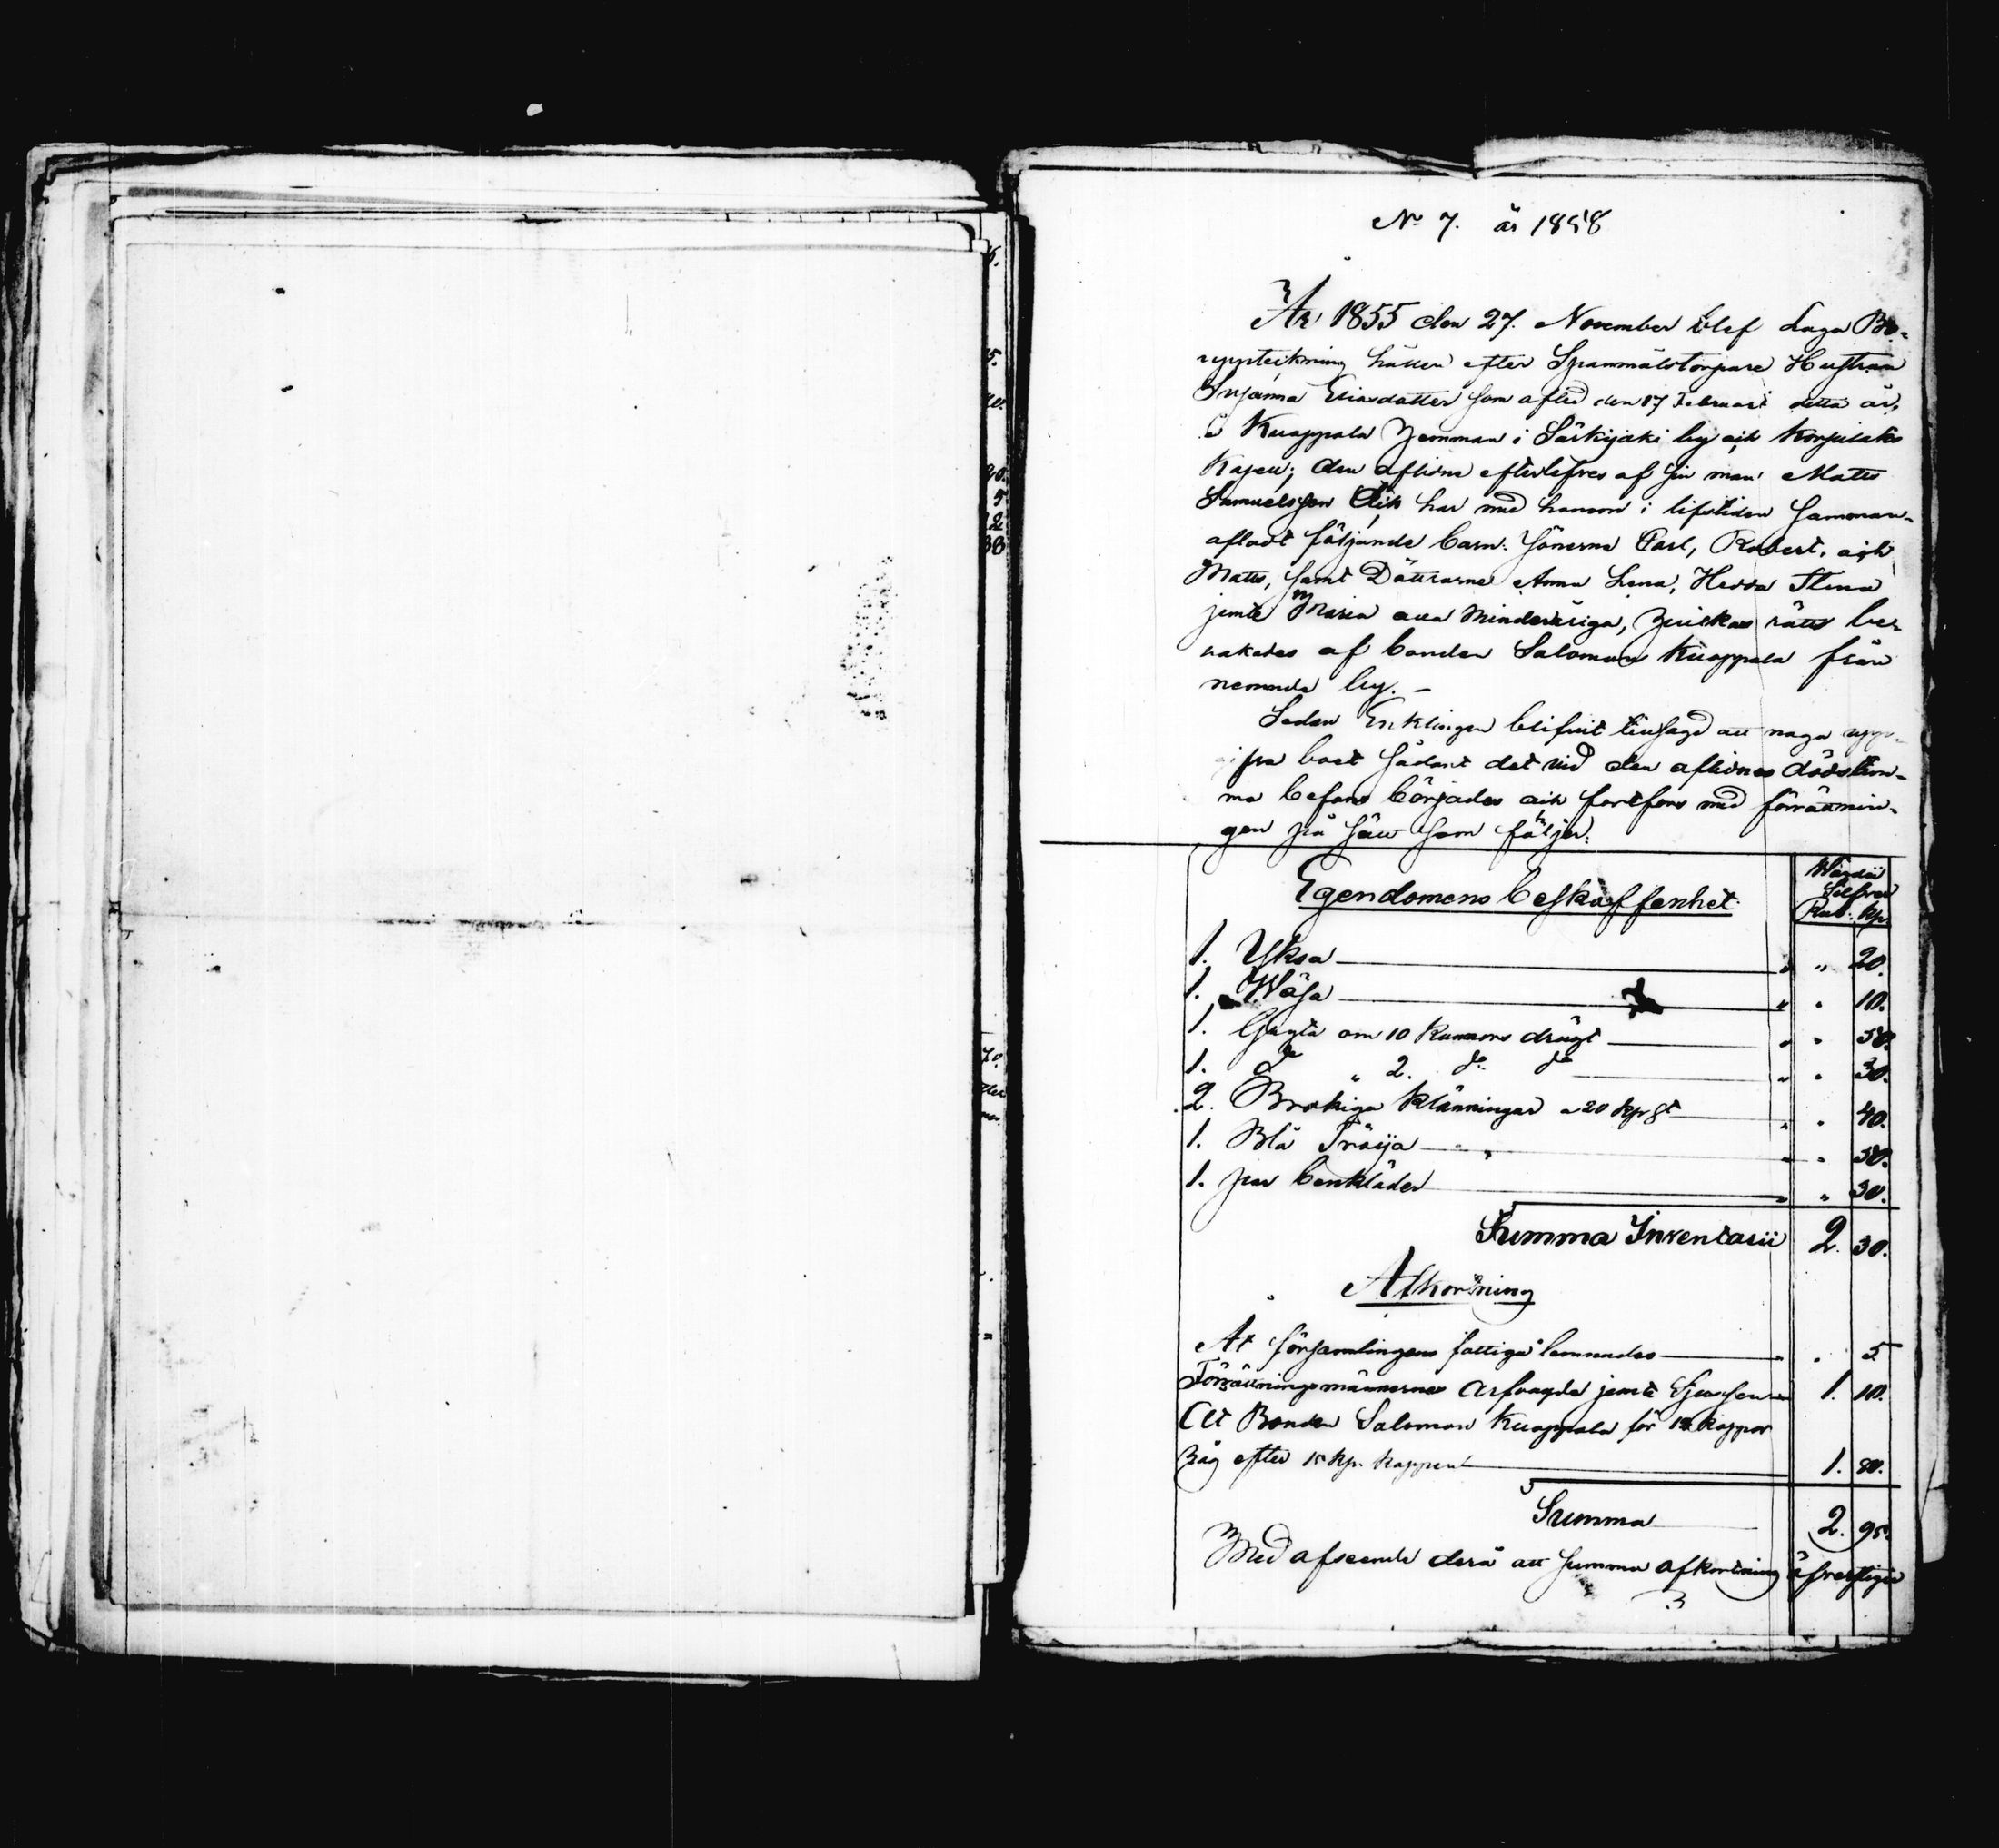 No 7. år 1858
År 1855 den 27. November blef Laga Bo-
uppteckning hållen efter Spannmålstorpare Hustrun
Susanna Eliasdotter som afled den 17 Februari detta år,
å Kuoppala hemman i Särkijäki by och Korpilaks
Kapell; den aflidne efterlefves af sin man Matts
Samuelsson och har med honom i lifstiden samman-
aflat följande barn: sönerna Carl, Robert, och
Matts, samt Döttrarne Anna Lena, Hedda Stina
jemte Maria alla Minderåriga, hvilkas rätt be-
vakades af bonden Salomon Kuoppala från
nemnde by. -
Sedan Enklingen blifvit tillsagd att noga upp-
gifva boet sådant det vid den aflidnes dödstim-
ma befans börjades och fortfors med förrättnin-
gen på sätt som följer:
Egendomens beskaffenhet
Wärde i
Silfver
Rub. Kp.
1. Yksa " " 20.
1. Wåsa " " 10.
1. Gryta om 10 Kannors drägt " " 50.
1. do " 2. do do " " 30.
2. Brokiga Klänningar a 20 kp st " " 40.
1. Blå Tröija " " 50.
1. par benkläder " " 30.
Summa Inventarii 2. 30.
Afkortning
At församlingens fattiga lemnades " " 5
Förrättningsmännernes arfvode jemte 1. 10.
At Bonden Salomon Kuoppala för 12 Kappor
Råg efter 15 Kp. Kappen 1. 80.
Summa 2. 95.
Med afseende derå att summa afkortning öfverstiger